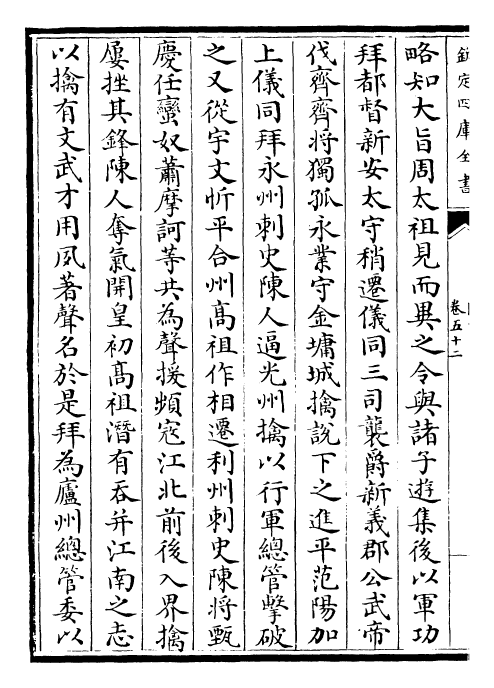 欽定四庫全書
卷五十二
略知大旨周太祖見而異之令與諸子遊集後以軍功
拜都督新安太守稍遷儀同三司襲爵新義郡公武帝
伐齊齊將獨孤永業守金墉城擒說下之進平范陽加
上儀同拜永州刺史陳人逼光州擒以行軍總管擊破
之又從宇文忻平合州髙祖作相遷利州刺史陳將甄
慶任蠻奴蕭摩訶等共為聲援頻寇江北前後入界擒
屢挫其鋒陳人奪氣開皇初髙祖潛有吞并江南之志
以擒有文武才用夙著聲名於是拜為廬州總管委以